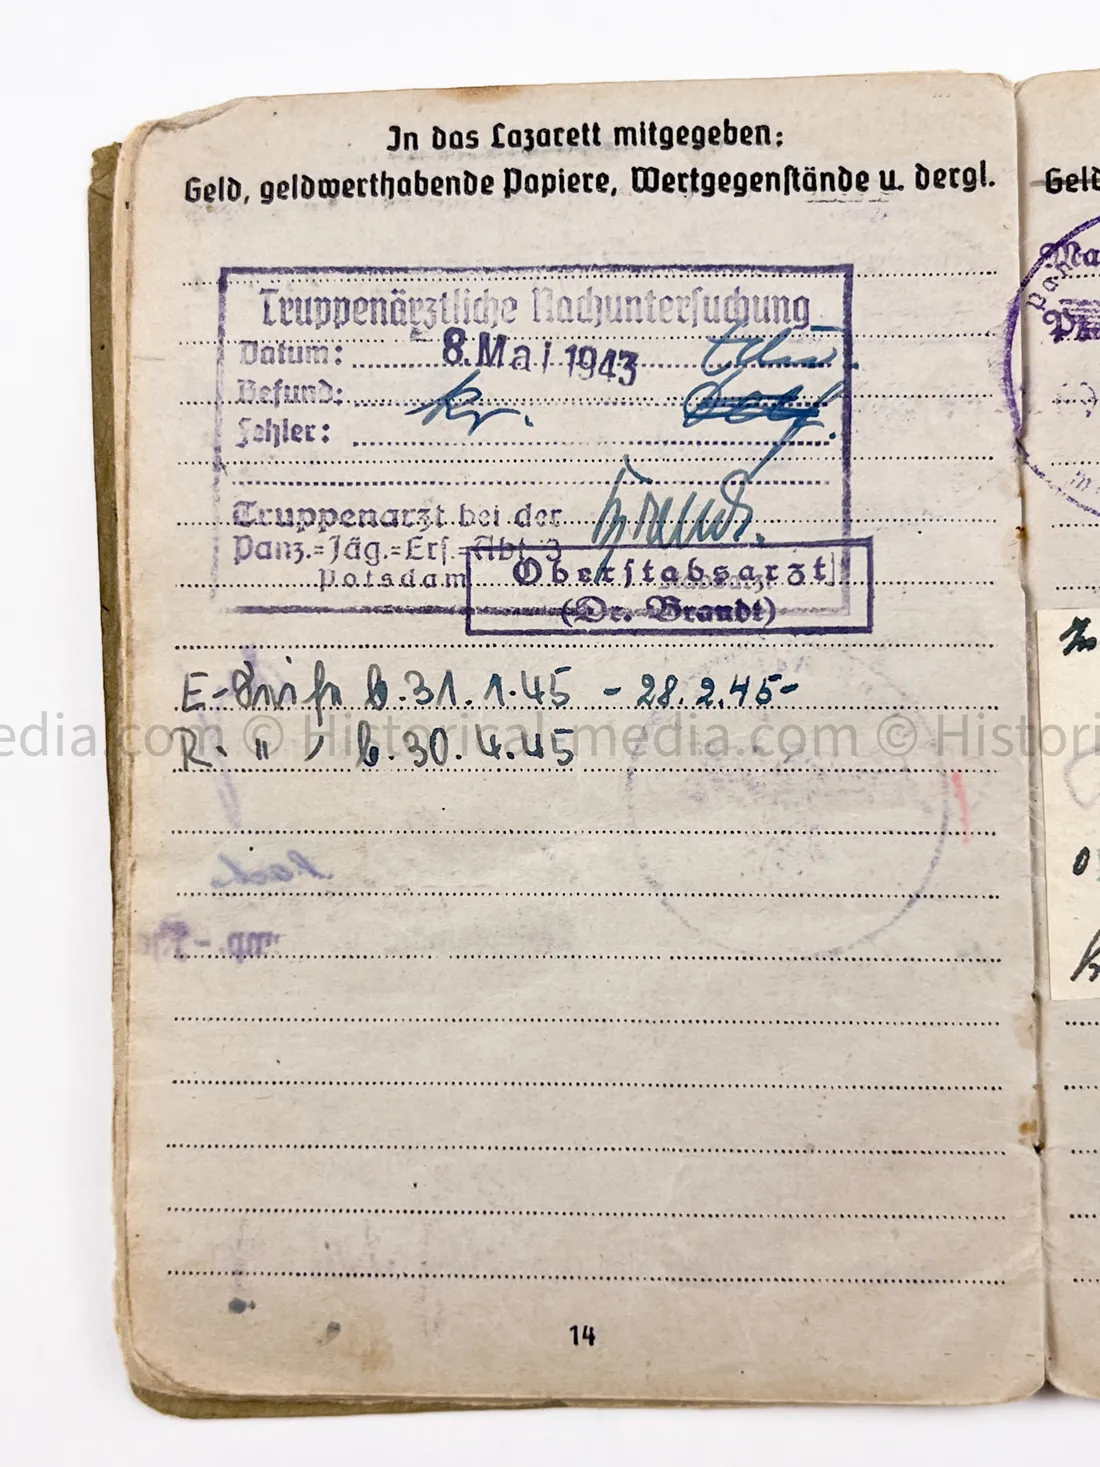 In das Lazarett mitgegeben:
Geld, geldwerthabende Papiere, Wertgegenstände u. dergl.
Truppenärztliche Nachuntersuchung
Datum: 8. Mai 1943
Befund: kv.
Fehler:
Truppenarzt bei der
Panz.=Jäg.=Ers.=Abt. 3
Potsdam
Oberstabsarzt
(Dr. Brandt)
E- b. 31.1.45 - 28.2.45-
R. " , b. 30.4.45
14
Geld
edia.com © Historical-media.com © Histori